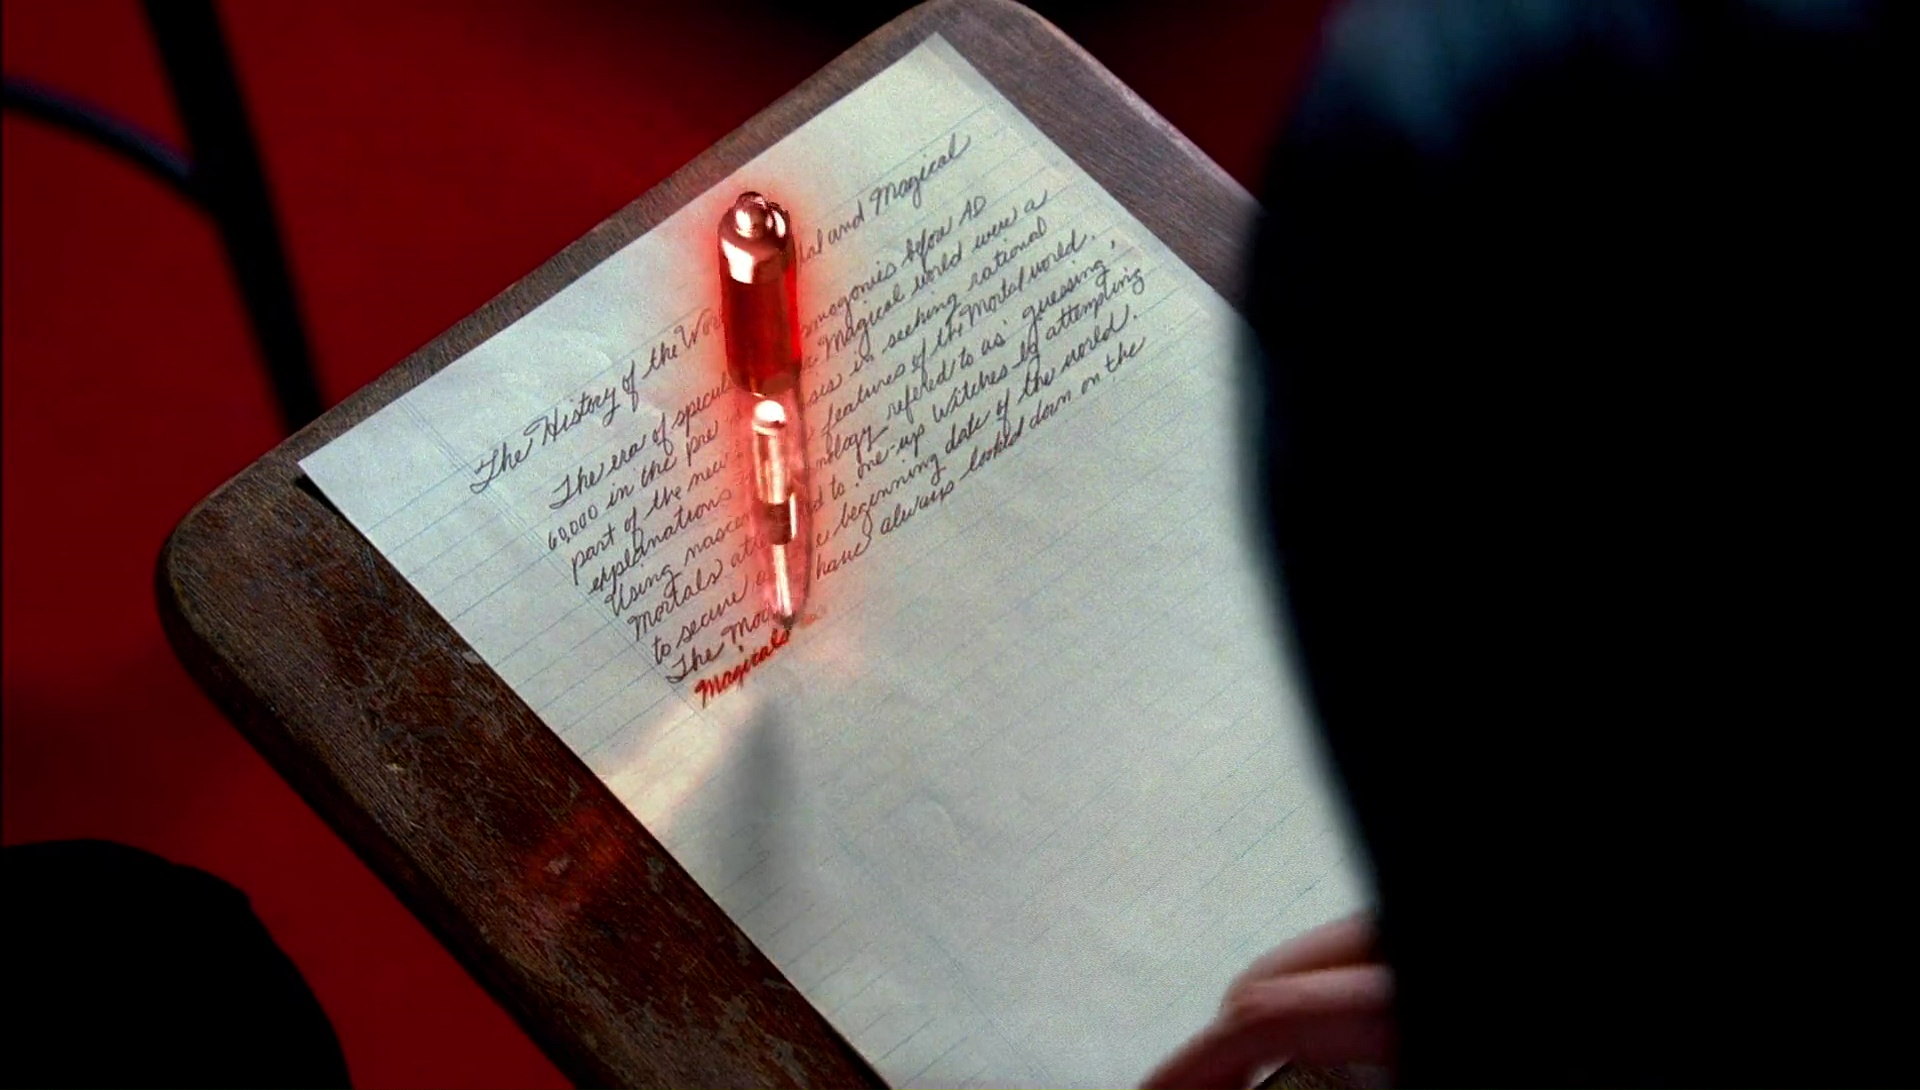 The History of the Wor tal and Magical
The era of specul smogonies before AD
60,000 in the pre Magical world were a
part of the new ses in seeking rational
explanations features of the Mortal world.
Using nascen nology refered to as guessing,
Mortals att d to one-up Witches by attempting
to secure a e beginning date of the world.
The Mo have always looked down on the
Magicals